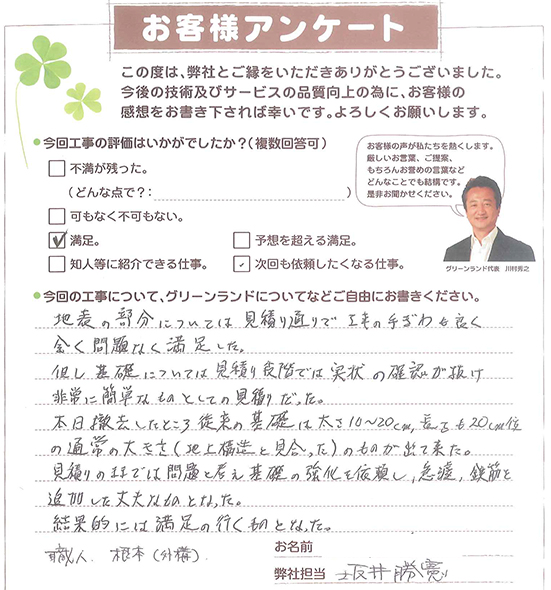 お客様アンケート
この度は、弊社とご縁をいただきありがとうございました。
今後の技術及びサービスの品質向上の為に、お客様の
感想をお書き下されば幸いです。よろしくお願いします。
●今回工事の評価はいかがでしたか？（複数回答可）
不満が残った。
（どんな点で？：　）
可もなく不可もない。
満足。
予想を超える満足。
知人等に紹介できる仕事。
次回も依頼したくなる仕事。
お客様の声が私たちを熱くします。
厳しいお言葉、ご提案、
もちろんお誉めの言葉など
どんなことでも結構です。
是非お聞かせください。
グリーンランド代表　川村秀之
●今回の工事について、グリーンランドについてなどご自由にお書きください。
地表の部分については見積り通りで工事の手ぎわも良く
全く問題なく満足した。
但し基礎については見積り段階では実状の確認が抜け
非常に簡単なものとしての見積りだった。
本日撤去したところ従来の基礎は太さ10〜20cm,長さも20cm位
の通常の大きさ(地上構造と見合った)のものが出て来た。
見積りのままでは問題と考え基礎の強化を依頼し,急遽,鉄筋を
追加した丈夫なものとなった。
結果的には満足の行くものとなった。
職人　根本(外構)
お名前
弊社担当　坂井勝寛